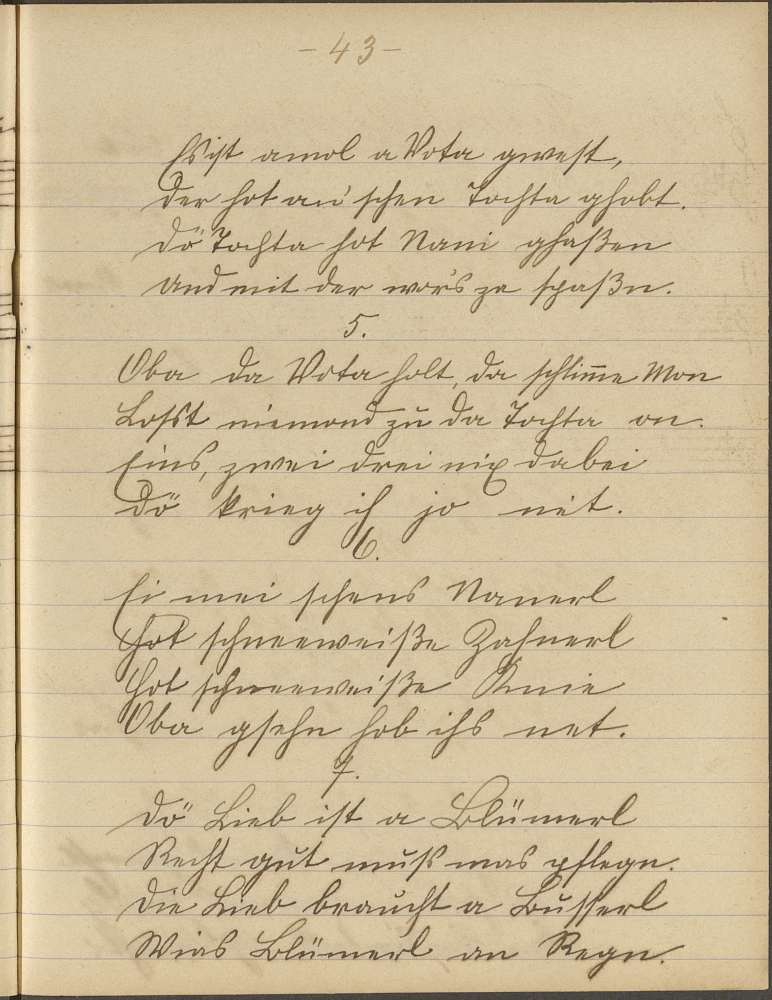 - 43 -
Es ist amol a Vota gwest,
Der hot an' schen Tochta ghobt.
Dö Tochta hot Nani ghaßen
Und mit der wor's za spaßn.
5.
Oba da Vota holt, da schlim̅e Mon
Losst niemand zu da Tochta on.
Eins, zwei drei nix dabei
Dö krieg ich jo net.
6.
Ei mei schens Nanerl
Hot schneeweiße Zahnerl
Hot schneeweiße Knie
Oba gsehn hob ihs net.
7.
Dö Lieb ist a Blümerl
Recht gut muß mas pflegn.
Die Lieb braucht a Busserl
Wias Blümerl an Regn.